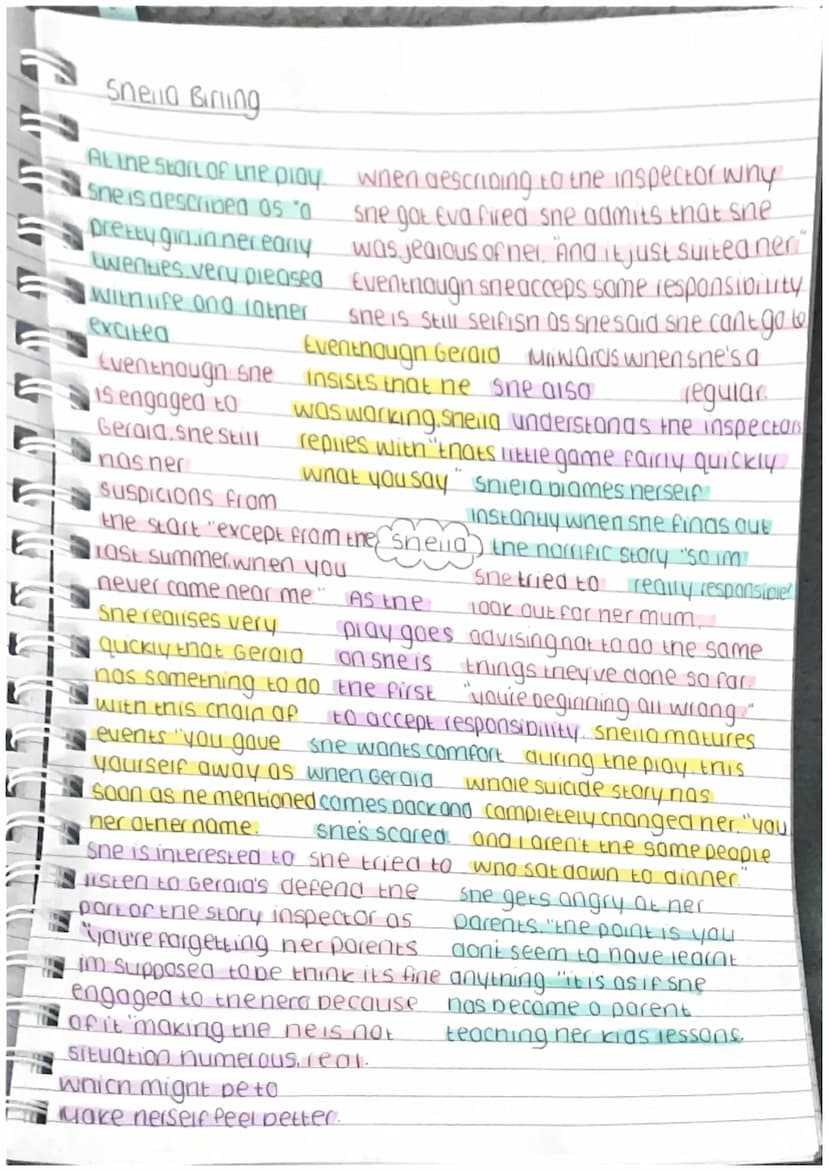 Sheila Birling
At the start of the play
she is described as "a
pretty girl in her early
twenties, very pleased
with life and rather
excited
when describing to the inspector why
she got Eva fired she admits that she
was jealous of her. "And it just suited her"
Eventhough she acceps some responsibility
she is still selfish as she said she cant go to
Milwards when she's a
regular.
Eventhough she
is engaged to
Gerald. she still
has her
suspicions from
the start "except from the
last summer. when you
never came near me"
Eventhough Gerald
insists that he
was working, sheila
replies with "thats
what you say"
she also
understands the inspectors
little game fairly quickly
Shiela blames herself
instantly when she finds out
the horrific story "so im
really responsible?
sheila
She tried to
look out for her mum,
advising not to do the same
things they've done so far
"you're beginning all wrong"
As the
play goes
on she is
the first
to accept responsibility.
She realises very
quickly that Gerald
has something to do
with this chain of
events "you gave
yourself away as
soon as he mentioned
her other name.
she wants comfort
when Gerald
comes back and
she's scared
sheila matures
during the play. this
whole suicide story has
completely changed her. "you
and I aren't the same people
who sat down to dinner"
She is interested to
listen to Gerald's
part of the story
"you're forgetting
im supposed to be
engaged to the hero
of it" making the
situation humorous,
which might be to
Make herself feel better.
she tried to
defend the
inspector as
her parents
think its fine
because
he is not
real.
she gets angry at her
parents. "the point is you
dont seem to have learnt
anything "it is as if she
has become a parent
teaching her kids lessons.